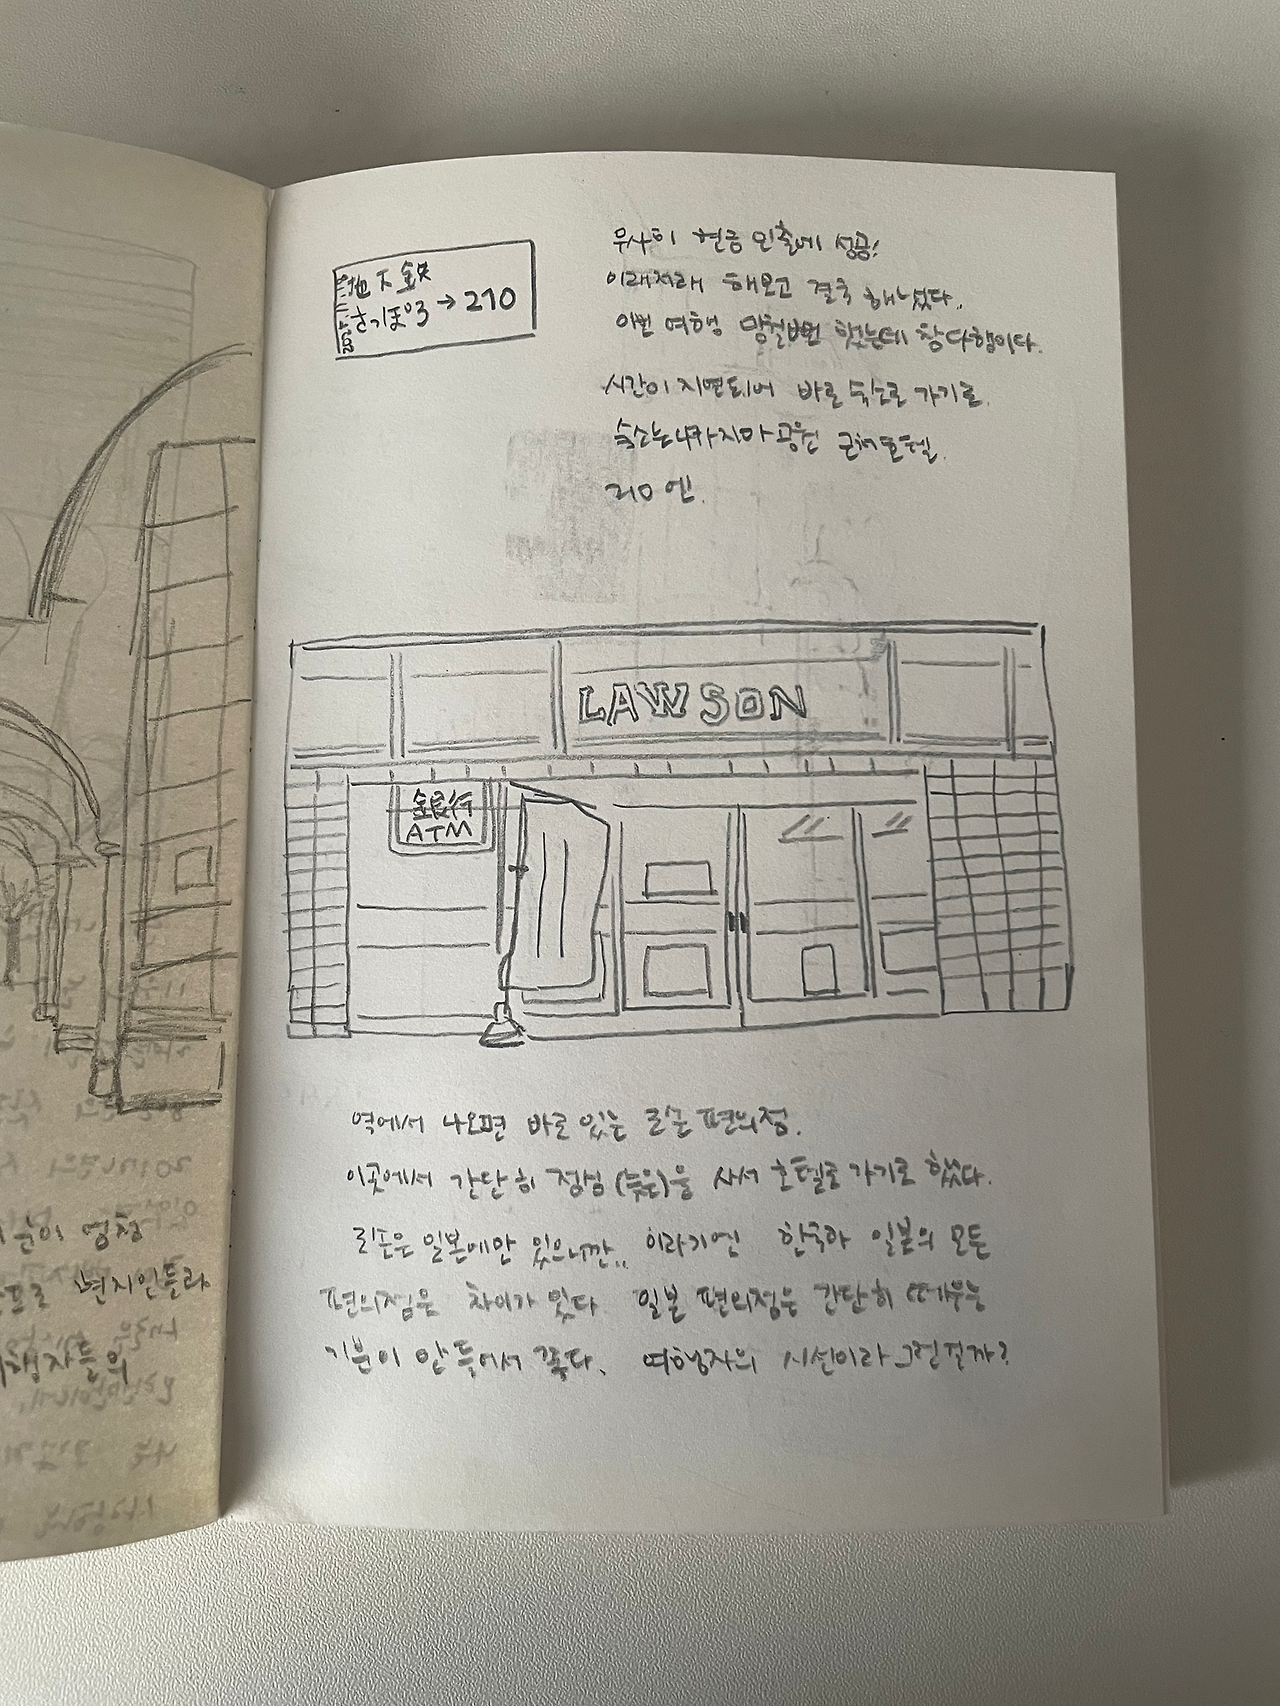 地下鉄
さっぽろ→210
무사히 현금 인출에 성공!
이래저래 해모고 결국 해냈다.
이번 여행 망칠뻔 했는데 참 다행이다.
시간이 지연되어 바로 숙소로 가기로.
숙소는 나카지마 공원 근처 호텔.
210엔.
LAWSON
銀行
ATM
역에서 나오면 바로 있는 로손 편의점.
이곳에서 간단히 점심(늦은)을 사서 호텔로 가기로 했다.
로손은 일본에만 있으니깐.. 이라기엔 한국과 일본의 모든
편의점은 차이가 있다. 일본 편의점은 간단히 때우는
기분이 안 들어서 좋다. 여행자의 시선이라 그런걸까?
순이 엄청
으로 현지인들과
여행자들의